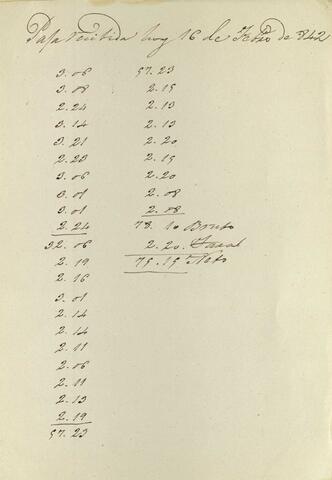 recibida hoy 16 de Febo de 842
3.06
3.08
2.24
3.14
3.21
2.23
3.06
3.01
3.01
2.24
32.06
2.19
2.16
3.01
2.14
2.14
2.11
2.06
2.11
2.13
2.19
57.23
57.23
2.15
2.13
2.13
2.20
2.15
2.20
2.08
2.08
78.10 Bruto
2.20
75.15 Neto